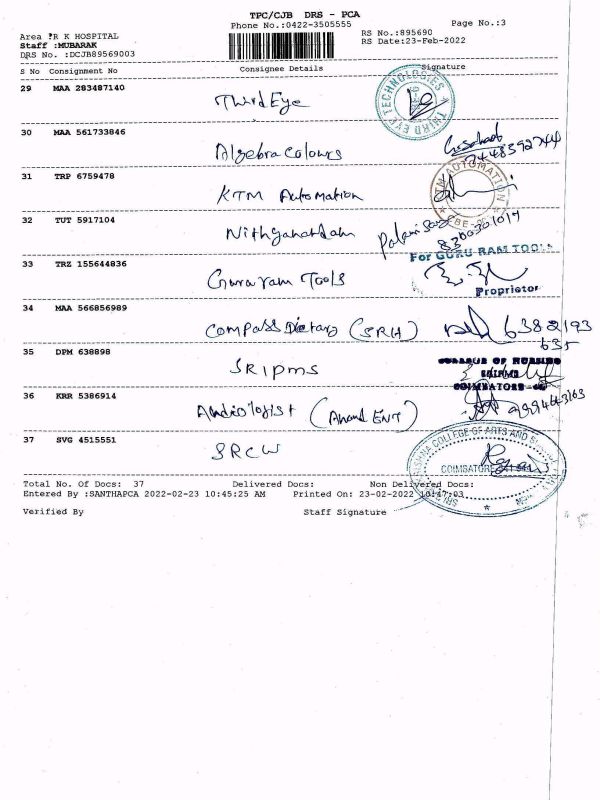 TPC/CJB DRS - PCA
Phone No.:0422-3505555
Page No.:3
Area :R K HOSPITAL
RS No.:895690
Staff :MUBARAK
RS Date:23-Feb-2022
DRS No. :DCJB89569003
S No Consignment No Consignee Details Signature
29 MAA 283487140 ThirdEye
THIRD EYE TECHNOLOGIES
30 MAA 561733846 Algebra Colours
31 TRP 6759478 KTM Automation
AUTOMATION
CBE
32 TUT 5917104 Nithyanandam
8300301019
33 TRZ 155644836 Gururam Tools
For GURU RAM TOOLS
Proprietor
34 MAA 566856989 Compass Dietary (SRH) 6382193
635
35 DPM 638898 SRIPMS
COLLEGE OF NURSING
SRIPMS
COIMBATORE
36 KRR 5386914 Audiologist (Anand ENT)
37 SVG 4515551 SRCW
KRISHNA COLLEGE OF ARTS AND
COIMBATORE
Total No. Of Docs: 37 Delivered Docs: Non Delivered Docs:
Entered By :SANTHAPCA 2022-02-23 10:45:25 AM Printed On: 23-02-2022 10:47:03
Verified By Staff Signature